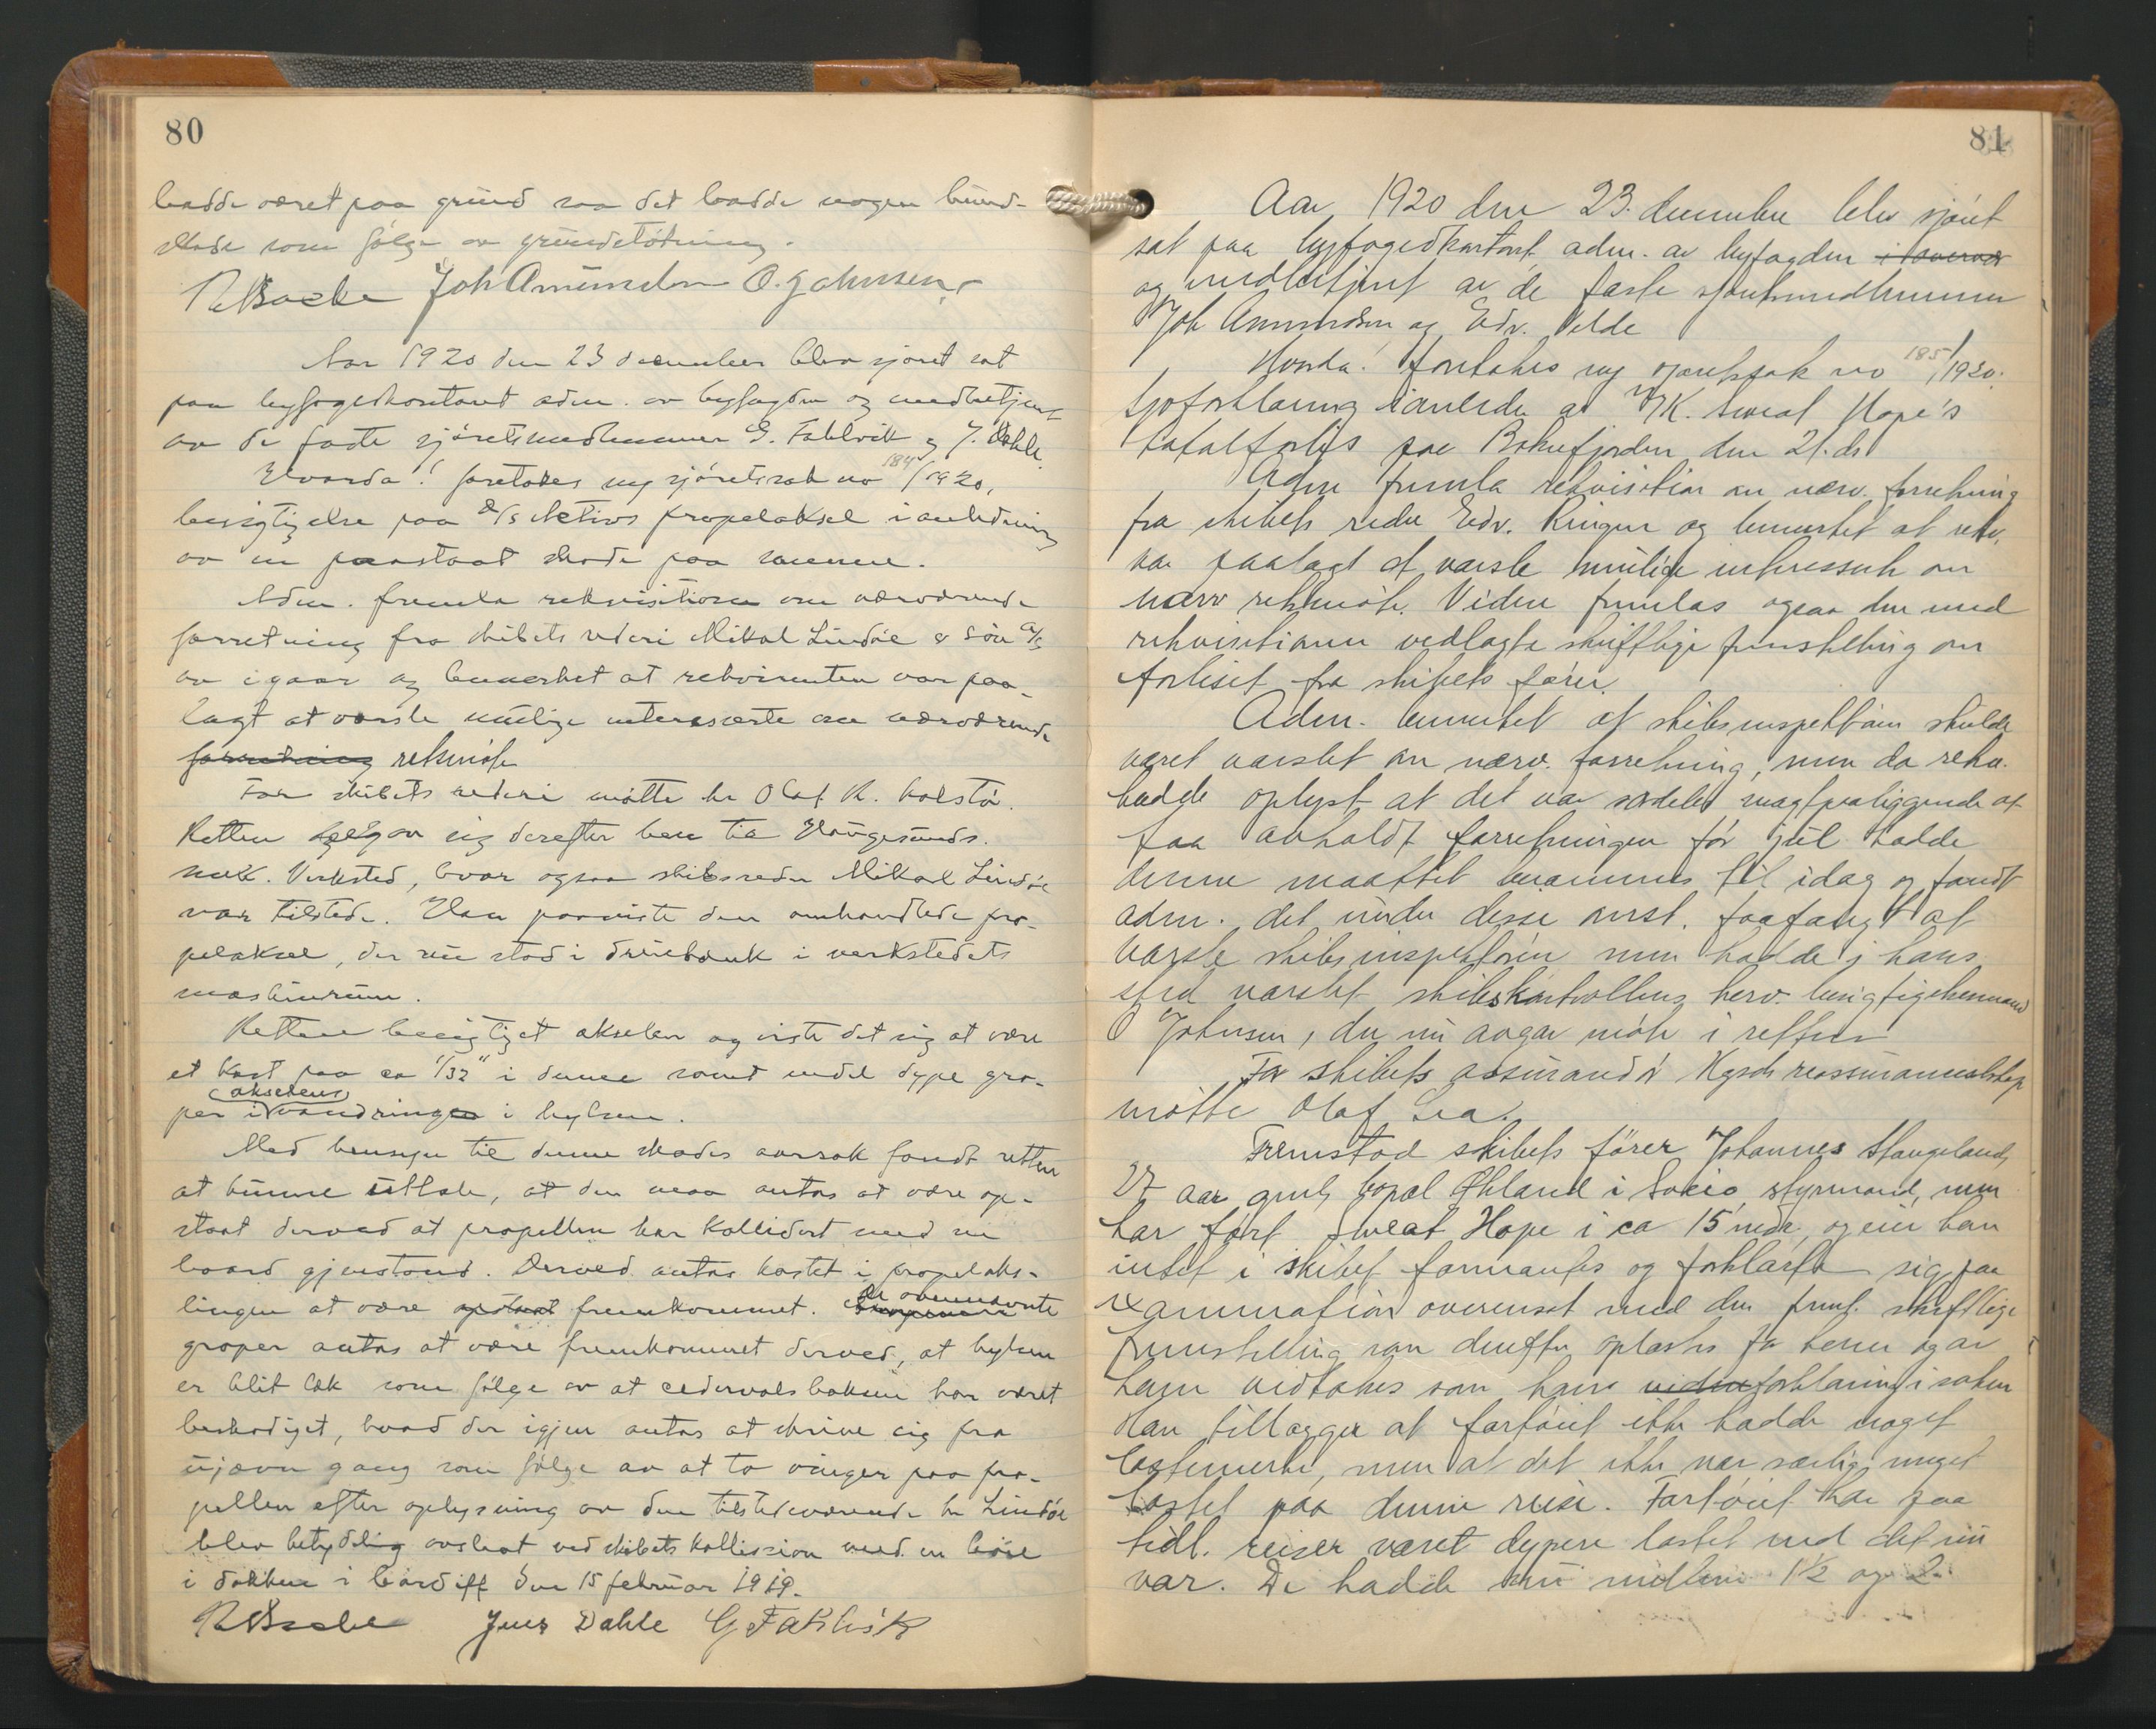 80
hadde været paa grund saa det hadde nogen bund-
skade som følge av grundstøtning.
Joh Amundsen O. Johnsen
Aar 1920 den 23 december blev sjøret sat
paa byfogedkontoret adm. av byfogden og medbetjent
av de faste sjøretsmedlemmer G. Fahlvik og J. Dahle.
Hvorda! foretokes ny sjøretssak no 184/1920,
besigtigelse paa D/S Activs propelaksel i anledning
av en paastaat skade paa samme.
Adm. fremla rekvisition om nærværende
forretning fra skibets rederi Mikal Lindøe & Søn A/S
av igaar og bemerket at rekvirenten var paa-
lagt at varsle mulige interesserte om nærværende
forretning retsmøte
For skibets rederi møtte hr Olaf K. Kolstø.
Retten begav sig derefter hen til Haugesunds
mek. Verksted, hvor ogsaa skibsreder Mikal Lindøe
var tilstede. Han paaviste den omhandlede pro-
pelaksel, der nu stod i dreiebænk i verkstedets
maskinrum.
Retten besigtiget akselen og viste det sig at være
et kast paa ca 1/32" i denne samt endel dype gro-
per i akselens vandringer i hylsen.
Med hensyn til denne skades aarsak fandt retten
at kunne uttale, at den maa antas at være op-
staat derved at propellen har kollidert med en
haard gjenstand. Derved antas kastet i propelaks-
lingen at være opstaat fremkommet. de ovennævnte
groper antas at være fremkommet derved, at hylsen
er blit læk som følge av at cedervalsboksen har været
beskadiget, hvad der igjen antas at skrive sig fra
ujævn gang som følge av at to vinger paa pro-
pellen efter oplysning av den tilstedeværende hr Lindøe
blev betydelig avslaat ved skibets kollission med en bøie
i dokken i Cardiff den 15 februar 1919.
Jens Dahle G Fahlvik
81
Aar 1920 den 23. december blev sjøret
sat paa byfogedkontoret adm. av byfogden
og medbetjent av de faste sjøretsmedlemmer
Joh Amundsen og Edv. Velde
Hvorda! foretokes ny sjøretssak no 185/1920.
Sjøforklaring i anledn av M/K. Sweat Hope's
totalforlis paa Boknefjorden den 21. ds
Adm fremla rekvisition om nærv. forretning
fra skibets reder Edv. Ringen og bemerket at rekv.
var paalagt at varsle mulige interesserte om
nærv retsmøte. Videre fremlas ogsaa den med
rekvisitionen vedlagte skriftlige fremstilling om
forliset fra skibets fører.
Adm. bemerket at skibsinspektøren skulde
været varslet om nærv. forretning, men da rekv.
hadde oplyst at det var særdeles magtpaaliggende at
faa avholdt forretningen før jul hadde
denne maattet berammes til idag og fandt
adm. det under disse omst. faafængt at
varsle skibsinspektøren men hadde i hans
sted varslet skibskontrollens herv. besigtigelsesmand
O Johnsen, der nu avgav møte i retten
For skibets assurandør Hgsds reassuranceselskap
møtte Olaf Lea.
Fremstod skibets fører Johannes Stangeland,
27 aar gml, bopæl Øhland i styrmand, men
har ført Sweat Hope i ca 15 mdr, og eier han
intet i skibet formantes og forklarte sig paa
examination overenst med den freml. skriftlige
fremstilling som derefter oplæstes for herren og av
ham vedtokes som hans videre forklaring i saken
Han tillægger at fartøiet ikke hadde noget
lastemerke, men at det ikke var særlig meget
lastet paa denne reise. Fartøiet har paa
tidl. reiser været dypere lastet end det nu
var. De hadde nu mellem 1½ og 2